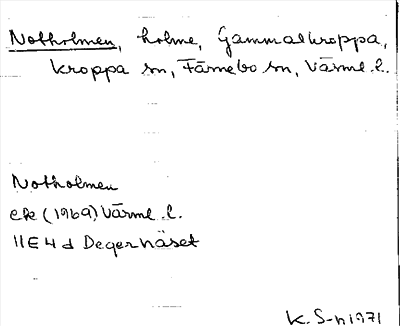 Notholmen, holme, Gammalkroppa,
Kroppa sn, Färnebo sn, Värml. l.
Notholmen
ek (1969) Värml. l.
11E4d Degernäset
K. S-n 1971